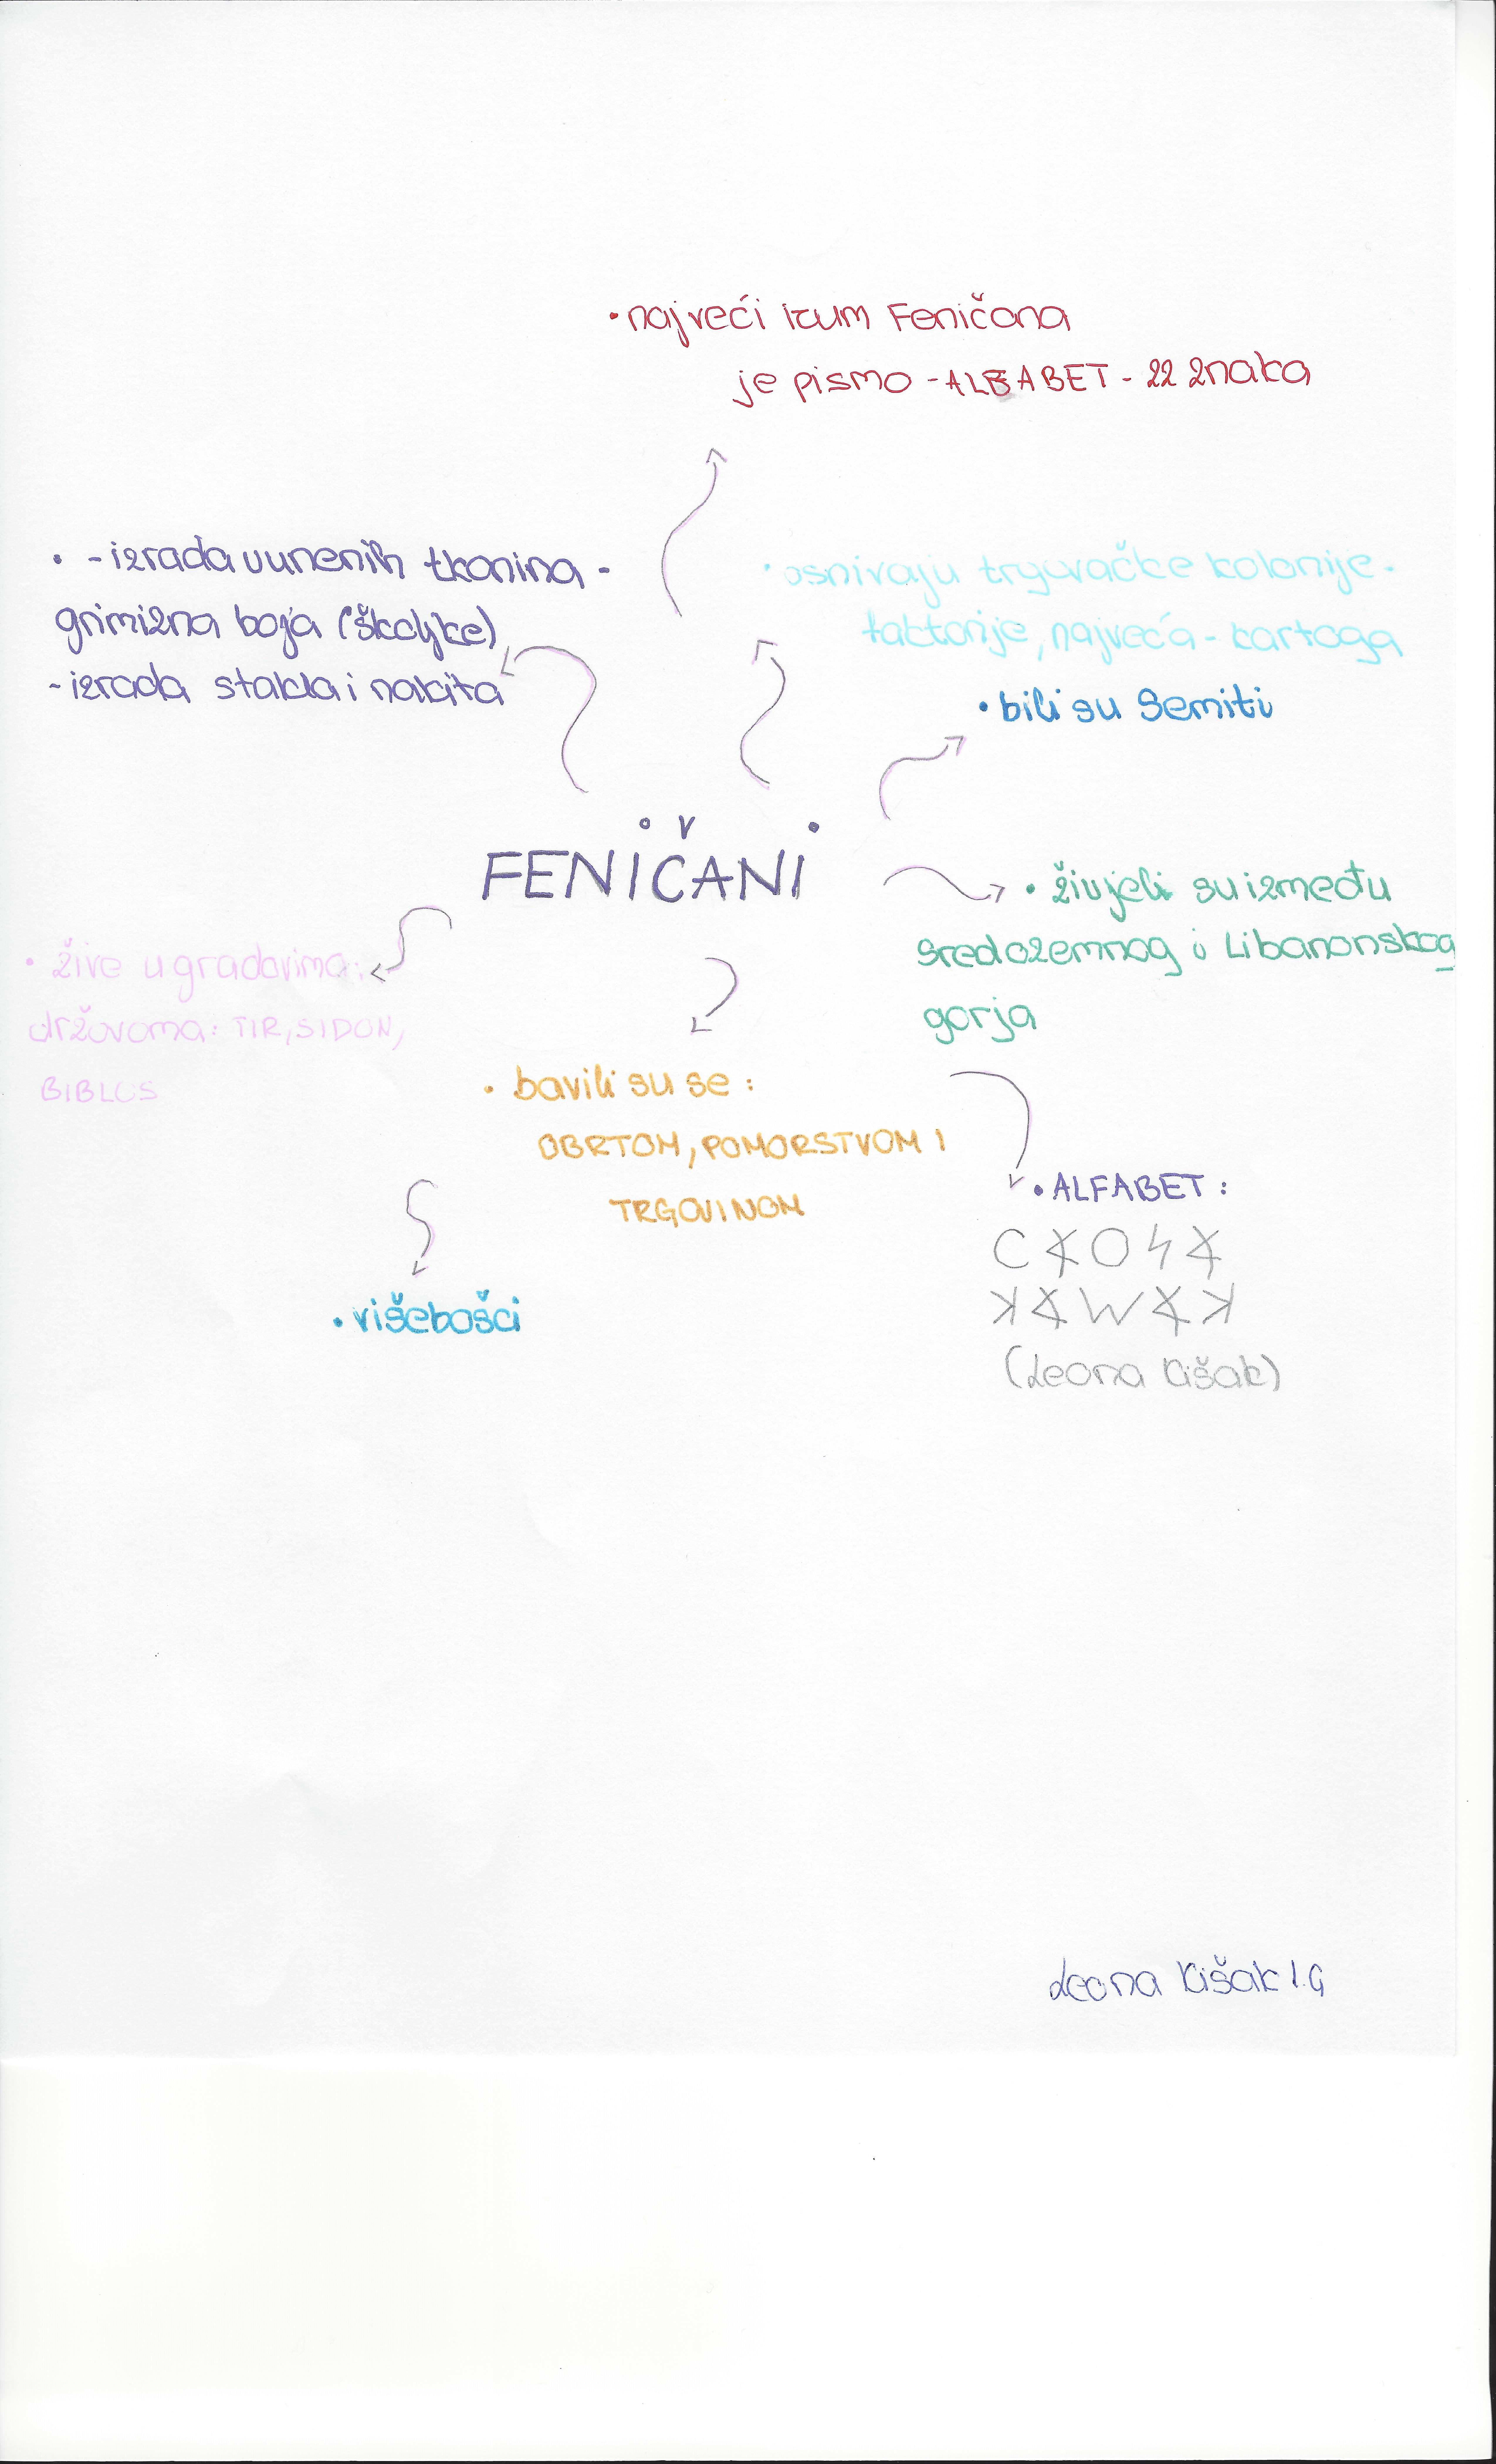 • najveći izum Feničana
je pismo - ALFABET - 22 znaka
• - izrada vunenih tkanina -
grimizna boja (školjke)
- izrada stakla i nakita
• osnivaju trgovačke kolonije -
faktorije, najveća - kartaga
• bili su Semiti
FENIČANI
• živjeli su između
Sredozemnog i Libanonskog
gorja
• žive u gradovima:
državama: TIR, SIDON,
BIBLOS
• bavili su se :
OBRTOM, POMORSTVOM I
TRGOVINOM
• ALFABET :
(Leona Kišak)
• višebošci
Leona Kišak 1.G